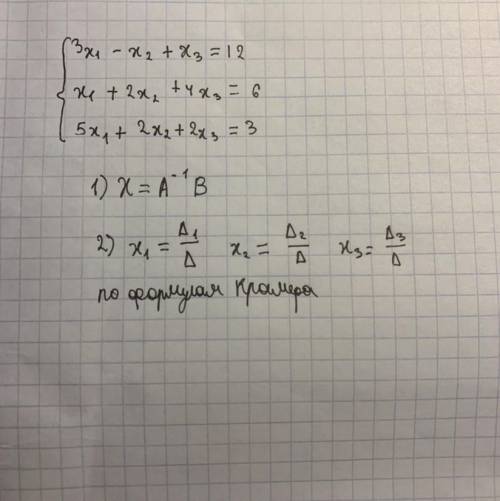 3x₁ - x₂ + x₃ = 12
x₁ + 2x₂ + 4x₃ = 6
5x₁ + 2x₂ + 2x₃ = 3
1) X = A⁻¹B
2) x₁ = Δ₁/Δ x₂ = Δ₂/Δ x₃ = Δ₃/Δ
по формулам Крамера